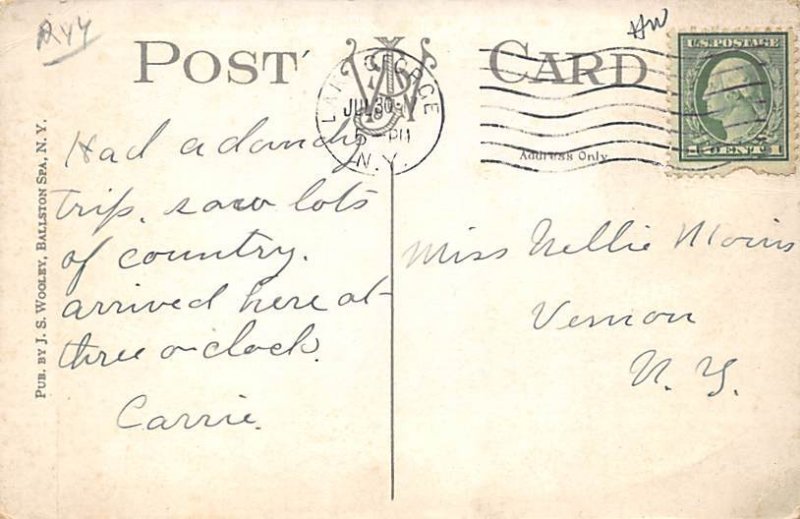 POST CARD
LAKE GEORGE
JUL 30
5 - PM
N.Y.
U.S. POSTAGE
1 CENT 1
Address Only
HW
PUB. BY J. S. WOOLEY, BALLSTON SPA, N. Y.
Had a dandy
trip. saw lots
of country.
arrived here at
three o-clock.
Carrie.
Miss Nellie
Vernon
N. Y.